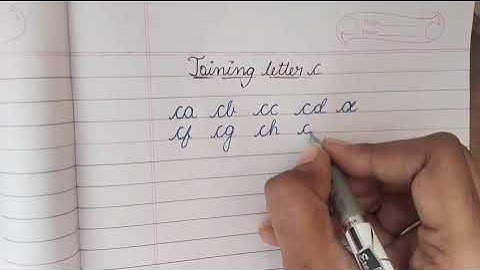 Joining letter c
ca cb cc cd ce
cf cg ch c